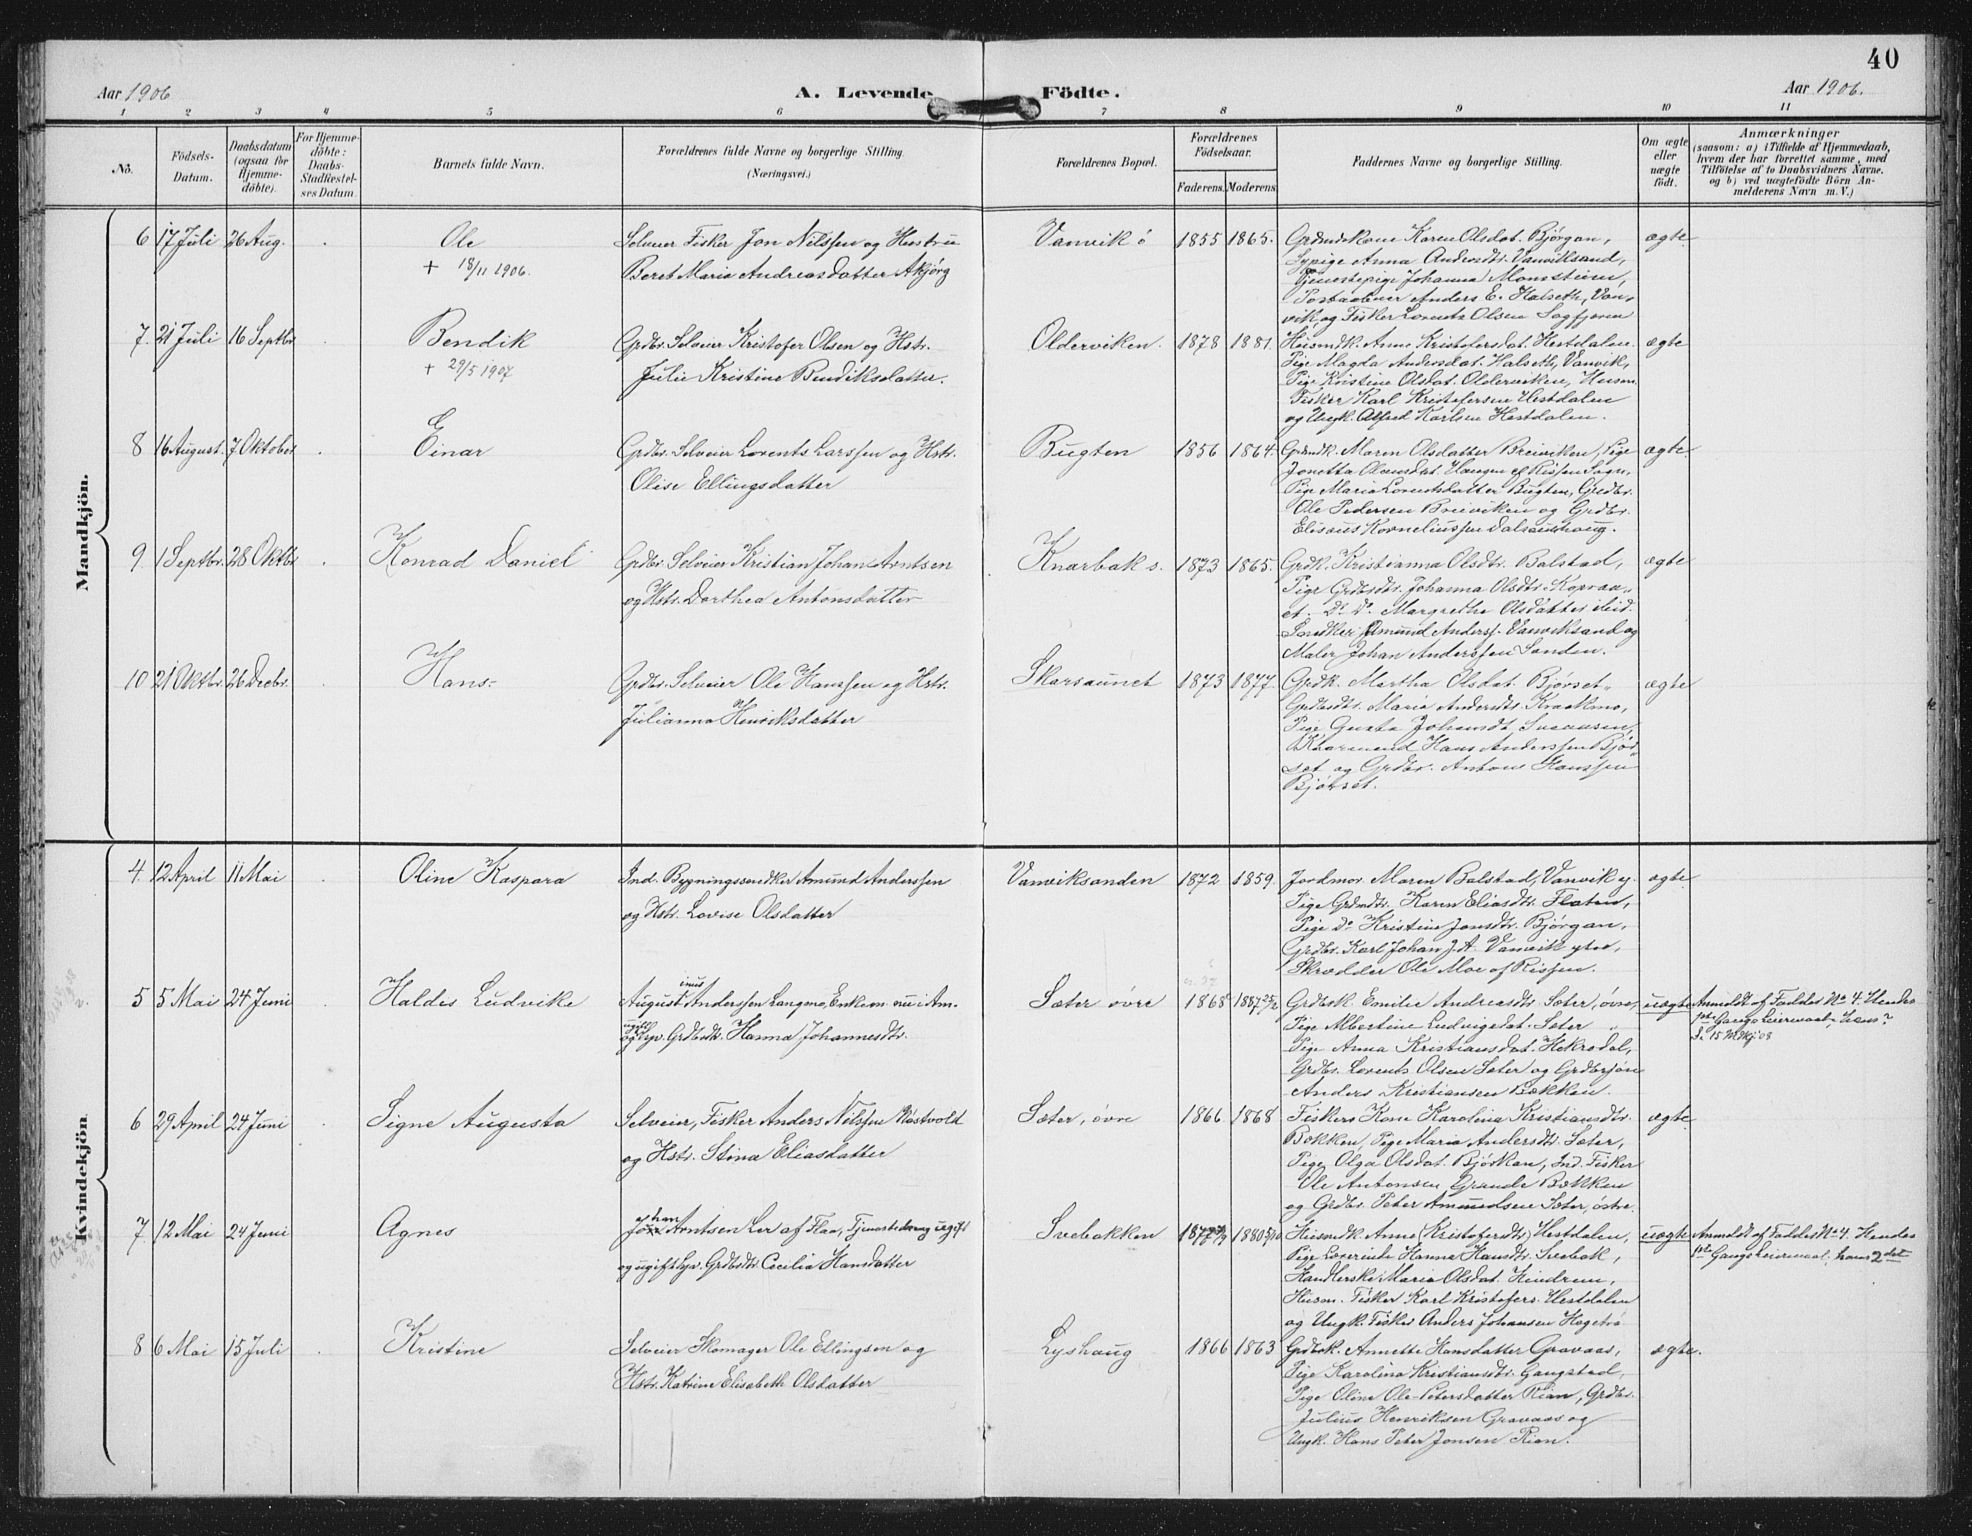 40
Aar 1906 A. Levende Födte. Aar 1906.
1 2 3 4 5 6 7 8 9 10 11
No.
Födsels-
Datum.
Daabsdatum
(ogsaa for
Hjemme-
döbte).
For Hjemme-
döbte:
Daabs-
Stadfæstel-
ses Datum.
Barnets fulde Navn.
Forældrenes fulde Navne og borgerlige Stilling
(Næringsvei.)
Forældrenes Bopæl.
Forældrenes
Födselsaar.
Faderens. Moderens.
Faddernes Navne og borgerlige Stilling.
Om ægte
eller
uægte
födt.
Anmærkninger
(saasom: a) i Tilfælde af Hjemmedaab,
hvem der har forrettet samme, med
Tilföielse af to Daabsvidners Navne.
og b) ved uægtefödte Börn An-
melderens Navn m. V.)
Mandkjön.
6 17 Juli 26 Aug. Ole
+ 18/11 1906.
Selveier Fisker Jon Nilssen og Hustru
Beret Maria Andreasdatter Akjørg
Vanvik ö 1855 1865.
Grdmdskone Karen Olsdat. Bjørgan,
Sypige Anna Andersdtr. Vanviksand,
Tjenestepige Johanna Monstien,
Postaabner Anders E. Halseth, Van-
vik og Fisker Lorents Olsen Sagfjæren
ægte
7. 21 Juli 16 Septbr Bendik
+ 29/5 1907
Grdbr. Selveier Kristofer Olsen og Hstr.
Julie Kristine Bendiksdatter.
Olderviken. 1878 1881.
Husmdk. Anne Kristofersdat. Hestdalen
Pige Magda Andersdat. Halseth, Vanvik,
Pige Kristine Olsdat. Olderviken, Husm.
Fisker Karl Kristofersen Hestdalen
og Ungk. Alfred Karlsen Hestdalen.
ægte
8 16 August. 7 Oktober Einar
Grdbr. Selveier Lorents Larssen og Hstr.
Olise Ellingsdatter
Bugten 1856 1864.
Grdmdk. Maren Olsdatter Breiviken, Pige
Jonetta Olausdat. Haugen af Rissen Sogn,
Pige Maria Lorentsdatter Bugten, Grdbr.
Ole Pedersen Breiviken og Grdbr.
Elisæus Korneliussen Dalsaunhaug.
ægte.
9. 1 Septbr. 28 Oktbr Konrad Daniel
Grdbr. Selveier Kristian Johan Arntsen
og Hstr. Dorthea Antonsdatter
Knarbak s. 1873 1865.
Grdk. Kristianna Olsdtr. Balstad,
Pige Grdbsdtr. Johanna Olsdtr. Kopraa-
et. Do Do Margrethe Olsdatter ibid.
Snedker Amund Anderss. Vanviksand og
Maler Johan Anderssen Sanden.
ægte
10 21 Oktbr. 26 Decbr. Hans-
Grdbr. Selveier Ole Hanssen og Hstr.
Julianna Henriksdatter
Skarsaunet 1873 1877
Grdk. Martha Olsdat. Bjørset-
Grdbsdtr. Maria Andersdtr. Kraakmo,
Pige Gusta Johansdt. Svaasen,
Kaarmand Hans Anderssen Bjør-
set og Grdbr. Antons Hanssen
Bjørset.
ægte
Kvindekjön
4. 12 April 11 Mai Oline Kaspara
Ind. Bygningssnedker Amund Anderssen
og Hstr. Lovise Olsdatter
Vanviksanden 1872 1859.
Jordmor Maren Balstad, Vanvik y.
Pige Grdmdtr. Karen Eliasdtr. Flaten,
Pige Do Kristine Jonsdtr. Bjørgan,
Grdbr. Karl Johan J. A. Vanvik ytre,
Skrædder Ole Moe af Rissen.
ægte
5 5 Mai 24 Juni Haldis Ludvike
Augustinus Anderssen Langmo, Enkem. nu i Am.
og ugift Grdbsdtr. Hanna Johannesdtr.
Sæter øvre 1868 1887 25/2
Grdbsk. Emilie Andreasdtr. Sæter, øvre,
Pige Albertine Ludvigsdat. Sæter "
Pige Anna Kristiansdat. Hekredal,
Grdbr. Lorents Olsen Sæter og Grdbrsøn
Anders Kristiansen Bækken.
uægte
Anmeldt af Fadder No 4. Hendes
1ste Gangs Leiermaal, Hans?
S. 15 Mdkj 08
6 29 April 24 Juni Signe Augusta
Selveier, Fisker Anders Nilssen Nøstvold
og Hstr. Stina Eliasdatter
Sæter, øvre 1866 1868
Fiskers Kone Karolina Kristiansdtr.
Bækken, Pige Maria Andersdtr. Sæter,
Pige Olga Olsdat. Bjørkan, Ind. Fisker
Ole Antonsen Grande Bækken
og Grdbr. Peter Amundsen Sæter, østre.
ægte
7 12 Mai 24 Juni Agnes
Johan Arntsen Ler af Flaa, Tjenestedreng ugift
og ugift Grdbsdtr. Cecilia Hansdatter
Svebakken 1877 1880
Husmdk. Anne Kristofersdtr. Hestdalen,
Pige Lærerinde Hanna Hansdtr. Svebak,
Handlerske Maria Olsdat. Hindrem,
Husm. Fisker Karl Kristofers. Hestdalen
og Ungk. Fisker Anders Johansen Hageträ
uægte
Anmeldt af Fadder No 4. Hendes
1ste Gangs Leiermaal, hans 2det
8 6 Mai 15 Juli Kristine
Selveier Skomager Ole Ellingsen og
Hstr. Katrine Elisabeth Olsdatter
Lyshaug 1866 1863
Grdbsk. Annette Hansdatter Gravaas,
Pige Karolina Kristiansdtr. Gangstad,
Pige Oline Ole-Petersdatter Rian, Grdbr.
Julius Henriksen Gravaas og
Ungk. Hans Peter Jonsen Rian.
ægte.